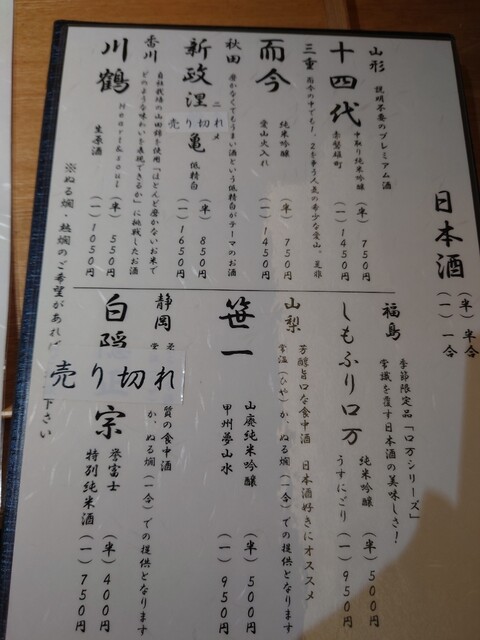 日本酒
(半) 半合
(一) 一合
山形 説明不要のプレミアム酒
十四代 中取り純米吟醸 (半) 750円
赤磐雄町 (一) 1450円
三重 而今の中でも1、2を争う人気の希少な愛山。是非
而今 純米吟醸 (半) 750円
愛山火入れ (一) 1450円
秋田 磨かなくてもうまい酒という低精白がテーマのお酒
新政 涅 亀 低精白 (半) 850円
(一) 1650円
売り切れ
香川 自社栽培の山田錦を使用「ほとんど磨かないお米で
どのような味わいを表現できるか」に挑戦したお酒
川鶴 Heart&soul (半) 550円
生原酒 (一) 1050円
福島 季節限定品「ロ万シリーズ」
常識を覆す日本酒の美味しさ!
しもふりロ万 純米吟醸 (半) 500円
うすにごり (一) 950円
山梨 芳醇旨口な食中酒 日本酒好きにオススメ
常温(ひや)か、ぬる燗(一合)での提供となります
笹一 山廃純米吟醸 (半) 500円
甲州夢山水 (一) 950円
静岡 質の食中酒
か、ぬる燗(一合)での提供となります
白隠 宗 誉富士 (半) 400円
特別純米酒 (一) 750円
売り切れ
※ぬる燗・熱燗のご希望があれば 下さい